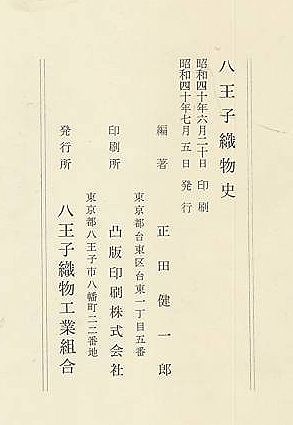 八王子織物史
昭和四十年六月二十日 印刷
昭和四十年七月五日 発行
編著 正田健一郎
東京都台東区台東一丁目五番
印刷所 凸版印刷株式会社
東京都八王子市八幡町二二番地
発行所 八王子織物工業組合